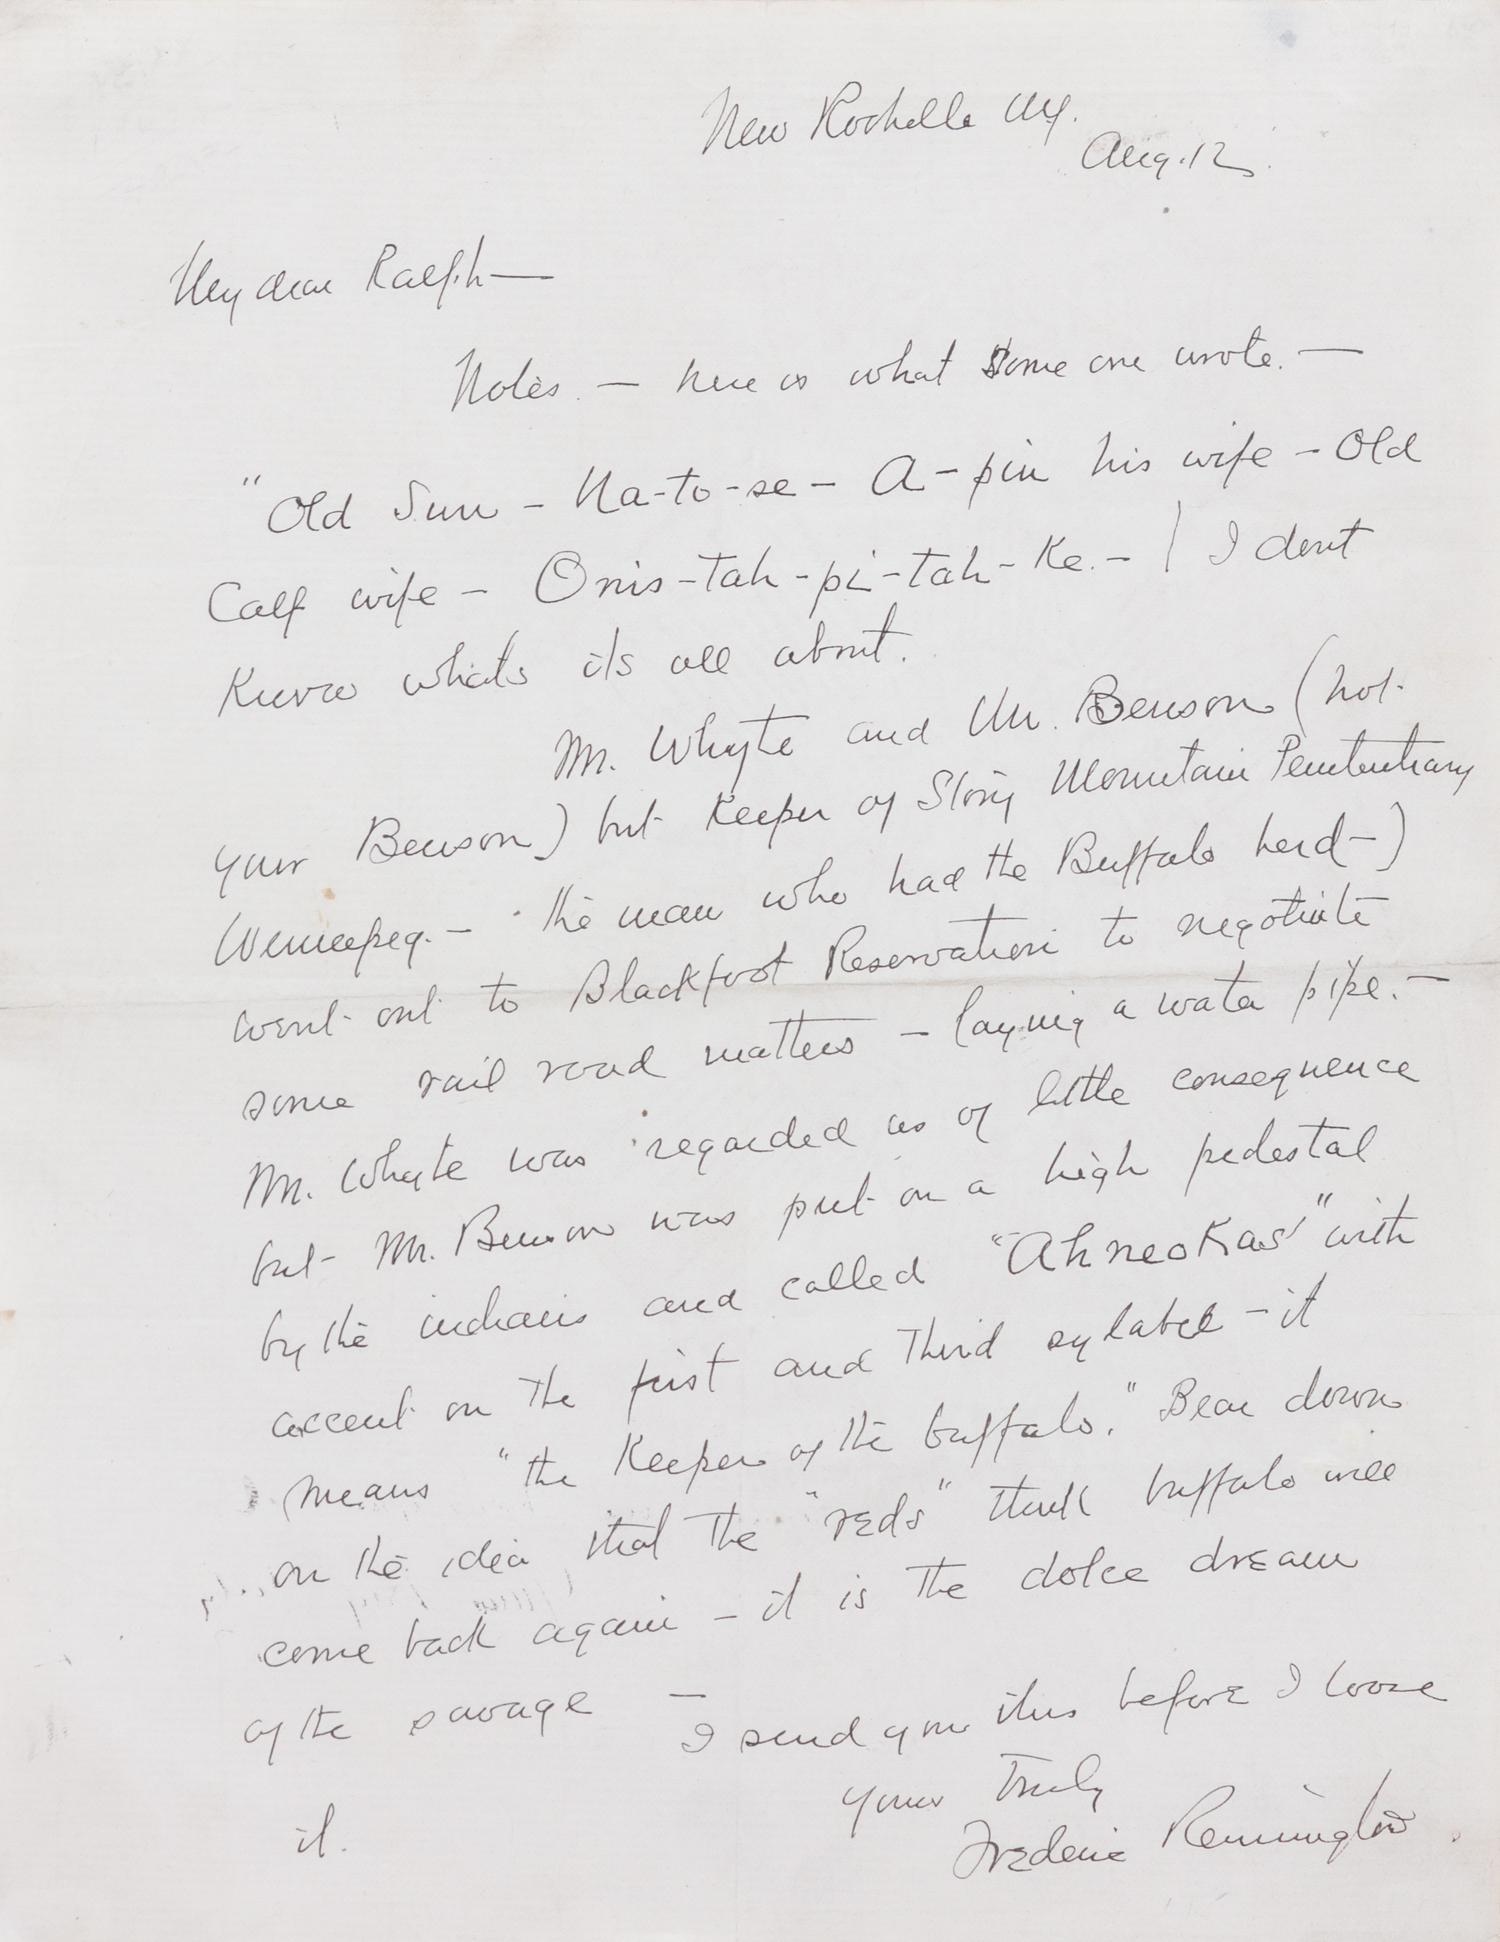 New Rochelle NY.
Aug. 12
My dear Ralph—
Notes. — here is what some one wrote. —
"Old Sun – Na-to-se – A-pin his wife – Old
Calf wife – Onis-tah-pi-tah-Ke. – / I dont
Know whats its all about.
Mr. Whyte and Mr. Benson (not
your Benson) but Keeper of Stony Mountain Penitentiary
Winnepeg. – the man who had the Buffalo herd –)
went out to Blackfoot Reservation to negotiate
some rail road matters – laying a water pipe. –
Mr. Whyte was regarded as of little consequence
but Mr. Benson was put on a high pedestal
by the indians and called "AhneoKas" with
accent on the first and third sylable – it
means "the Keeper of the buffalo." Bear down
on the idea that the "reds" think buffalo will
come back again – it is the dolce dream
of the savage —
I send you this before I loose
it.
Yours truly
Frederic Remington.